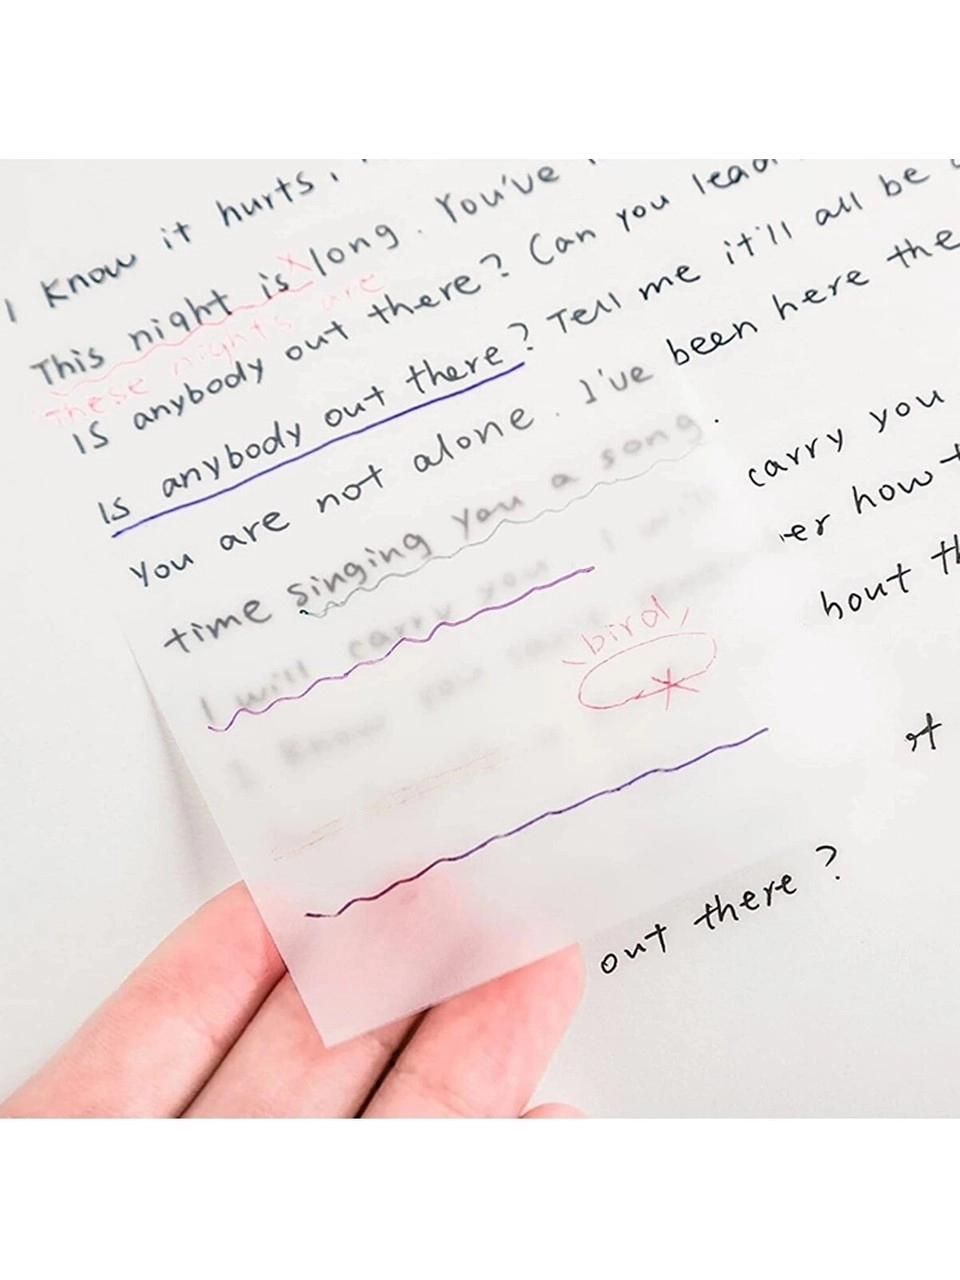 I know it hurts,
This night is long. You've
these nights are
Is anybody out there? Can you lead
Is anybody out there? Tell me it'll all be
You are not alone. I've been here the
time singing you a song.
I will carry you I will carry you
I know you er how
bird
bout th
out there?